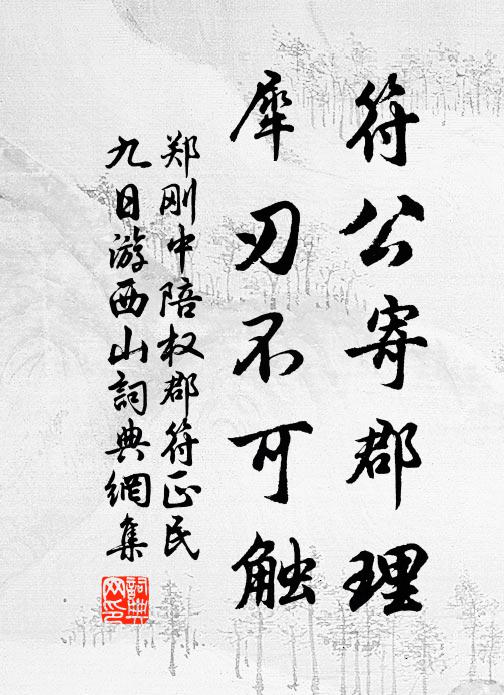 符公寄郡理
犀刃不可触
郑刚中陪权郡符正民
九日游西山詞典網集